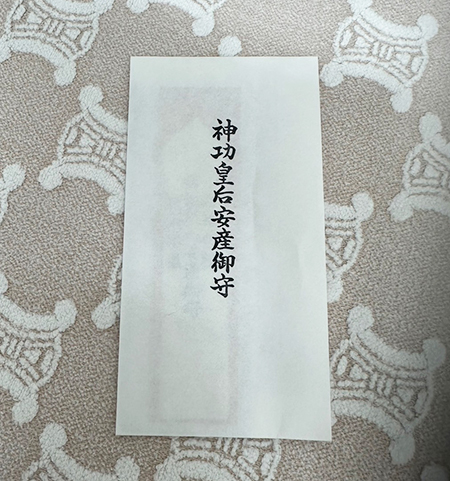 神功皇后安産御守